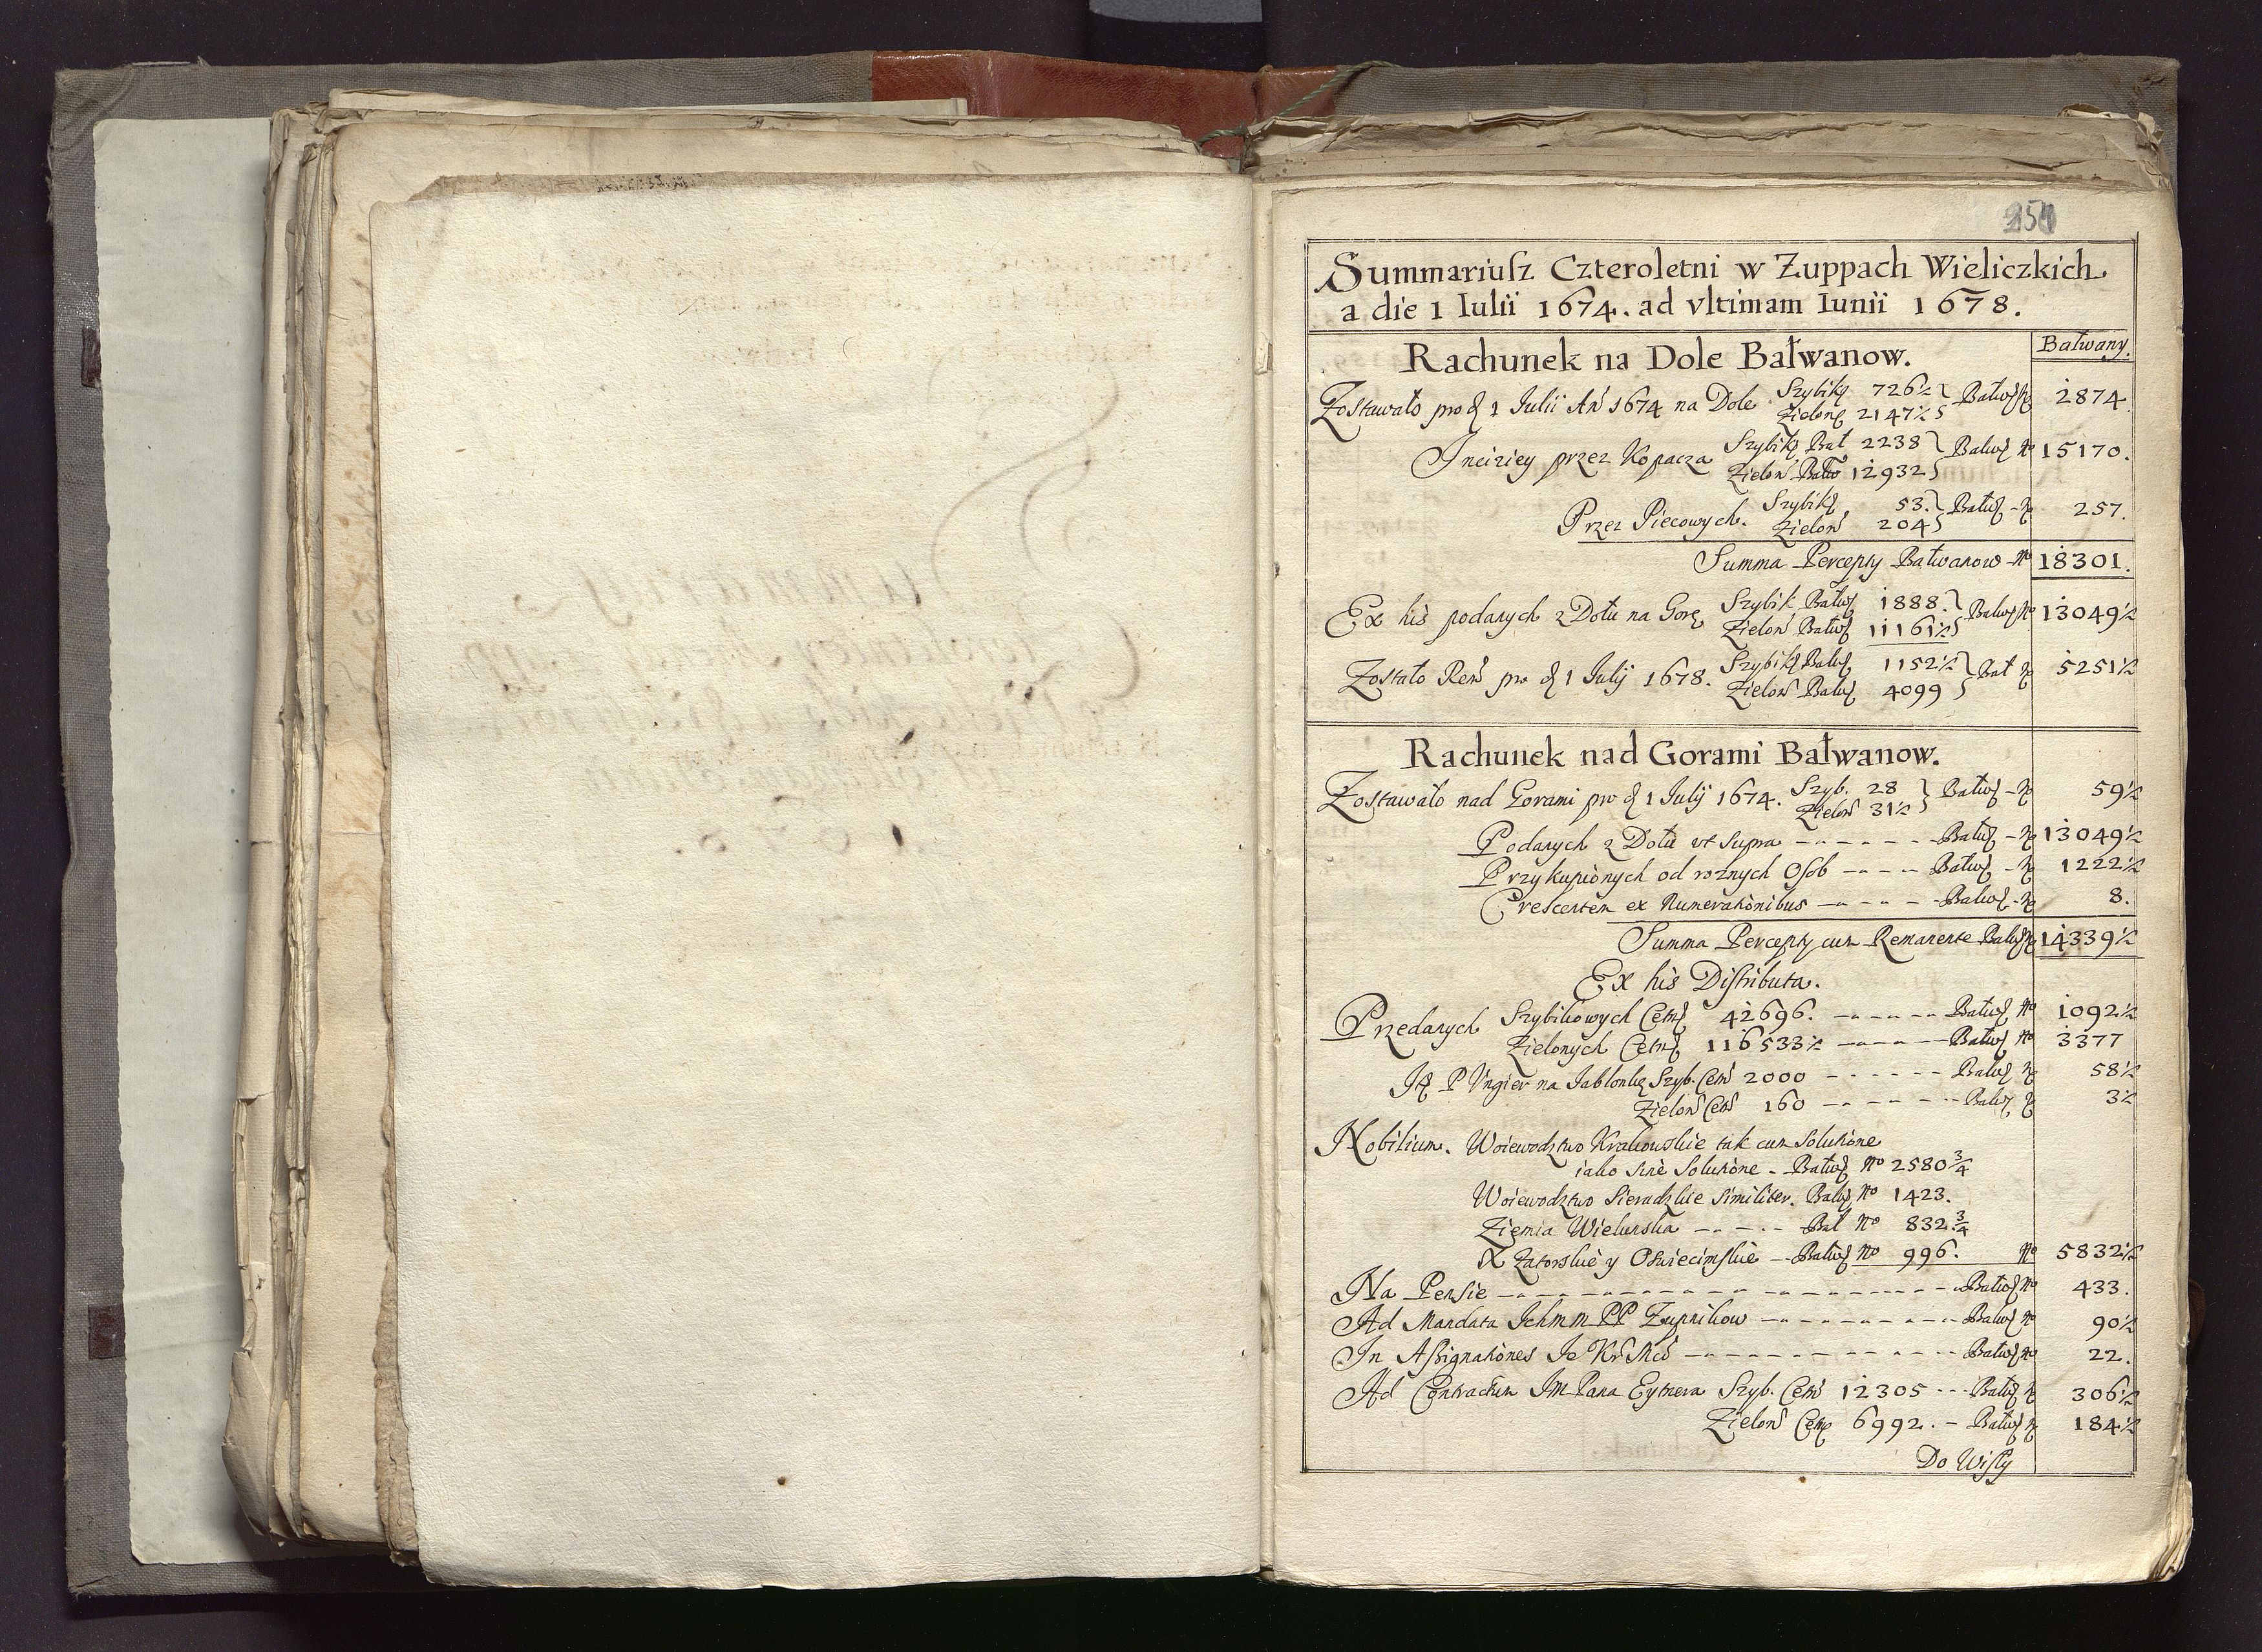 250
Summariusz Czteroletni w Zuppach Wieliczkich
a die 1 Iulii 1674. ad vltimam Iunii 1678.
Rachunek na Dole Bałwanow.
Bałwany.
Zostawało pro d 1 Julii An 1674 na Dole Szybikę 726½ Bałwę
2874
Zielonę 2147½
Inciziey przez Kopacza Szybikę Bał 2238 Bałwę No 15170.
Zielon Bałw 12932
Przez Piecowych. Szybikę 53. Bałwę No 257.
Zielon 204
Summa Percepty Bałwanow No 18301.
Ex his podanych z Dołu na Gorę Szybik Bałwę 1888. Bałwę No 13049½
Zielon Bałwę 11161½
Zostało Rem pro d 1 Julij 1678. Szybikę Bałwę 1152½ Bał No 5251½
Zielon Bałwę 4099
Rachunek nad Gorami Bałwanow.
Zostawało nad Gorami pro d 1 Julij 1674. Szyb. 28 Bałwę No 59½
Zielon 31½
Podanych z Dołu vt Supra Bałwę No 13049½
Przykupionych od roznych Osob Bałwę No 1222½
Crescenten ex Numerationibus Bałwę No 8.
Summa Percepty cum Remanente Bałwę No 14339½
Ex his Distributa.
Przedanych Szybikowych Cetnę 42696. Bałwę No 1092½
Zielonych Cetnę 116533½ Bałwę No 3377
P Vngier na Jabłonkę Szyb. Cetn 2000 Bałwę No 58½
Zielon Cetn 160 Bałwę No 3½
Nobilium. Woiewodztwo Krakowskie tak cum Solutione
iako sine Solutione - Bałwę No 2580 3/4
Woiewodztwo Sieradzkie Similiter. Bałwę No 1423.
Ziemia Wielunska Bał No 832. 3/4
X Zatorskie y Oswiecimskie Bałwę No 996. No 5832½
Na Pensie Bałwę No 433.
Ad Mandata Ichmm PP Zupnikow Bałwę No 90½
In Assignationes Je Kr Mci Bałwę No 22.
Ad Contractum Im Pana Eytnera Szyb. Cetn 12305 Bałwę No 306½
Zielon Cetnę 6992. Bałwę No 184½
Do Wisły